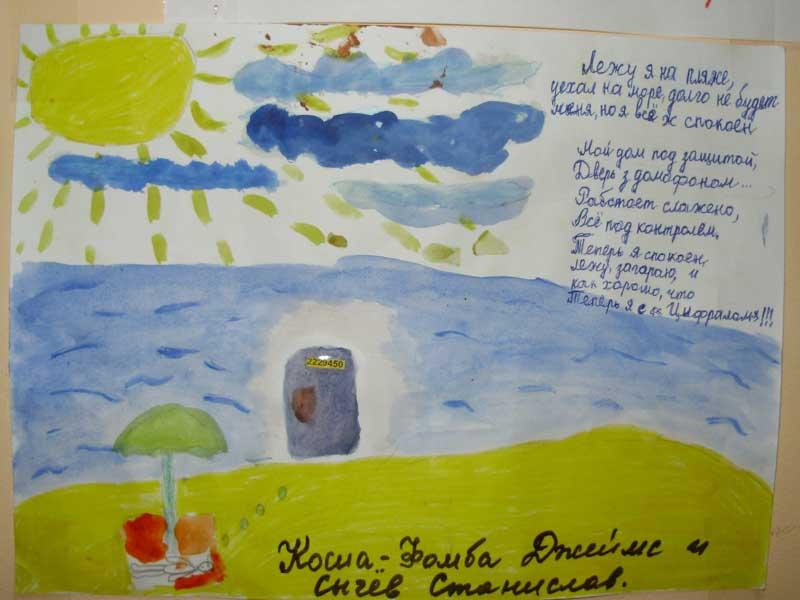 Лежу я на пляже,
уехал на море, долго не будет
меня, но я всё ж спокоен
Мой дом под защитой,
Дверь з домофоном...
Работает слажено,
Всё под контролем.
Теперь я спокоен,
лежу, загараю, и
как хорошо, что
Теперь я с «Цифралом»!!!
2229450
Косиа-Фомба Джеймс и
Сычёв Станислав.